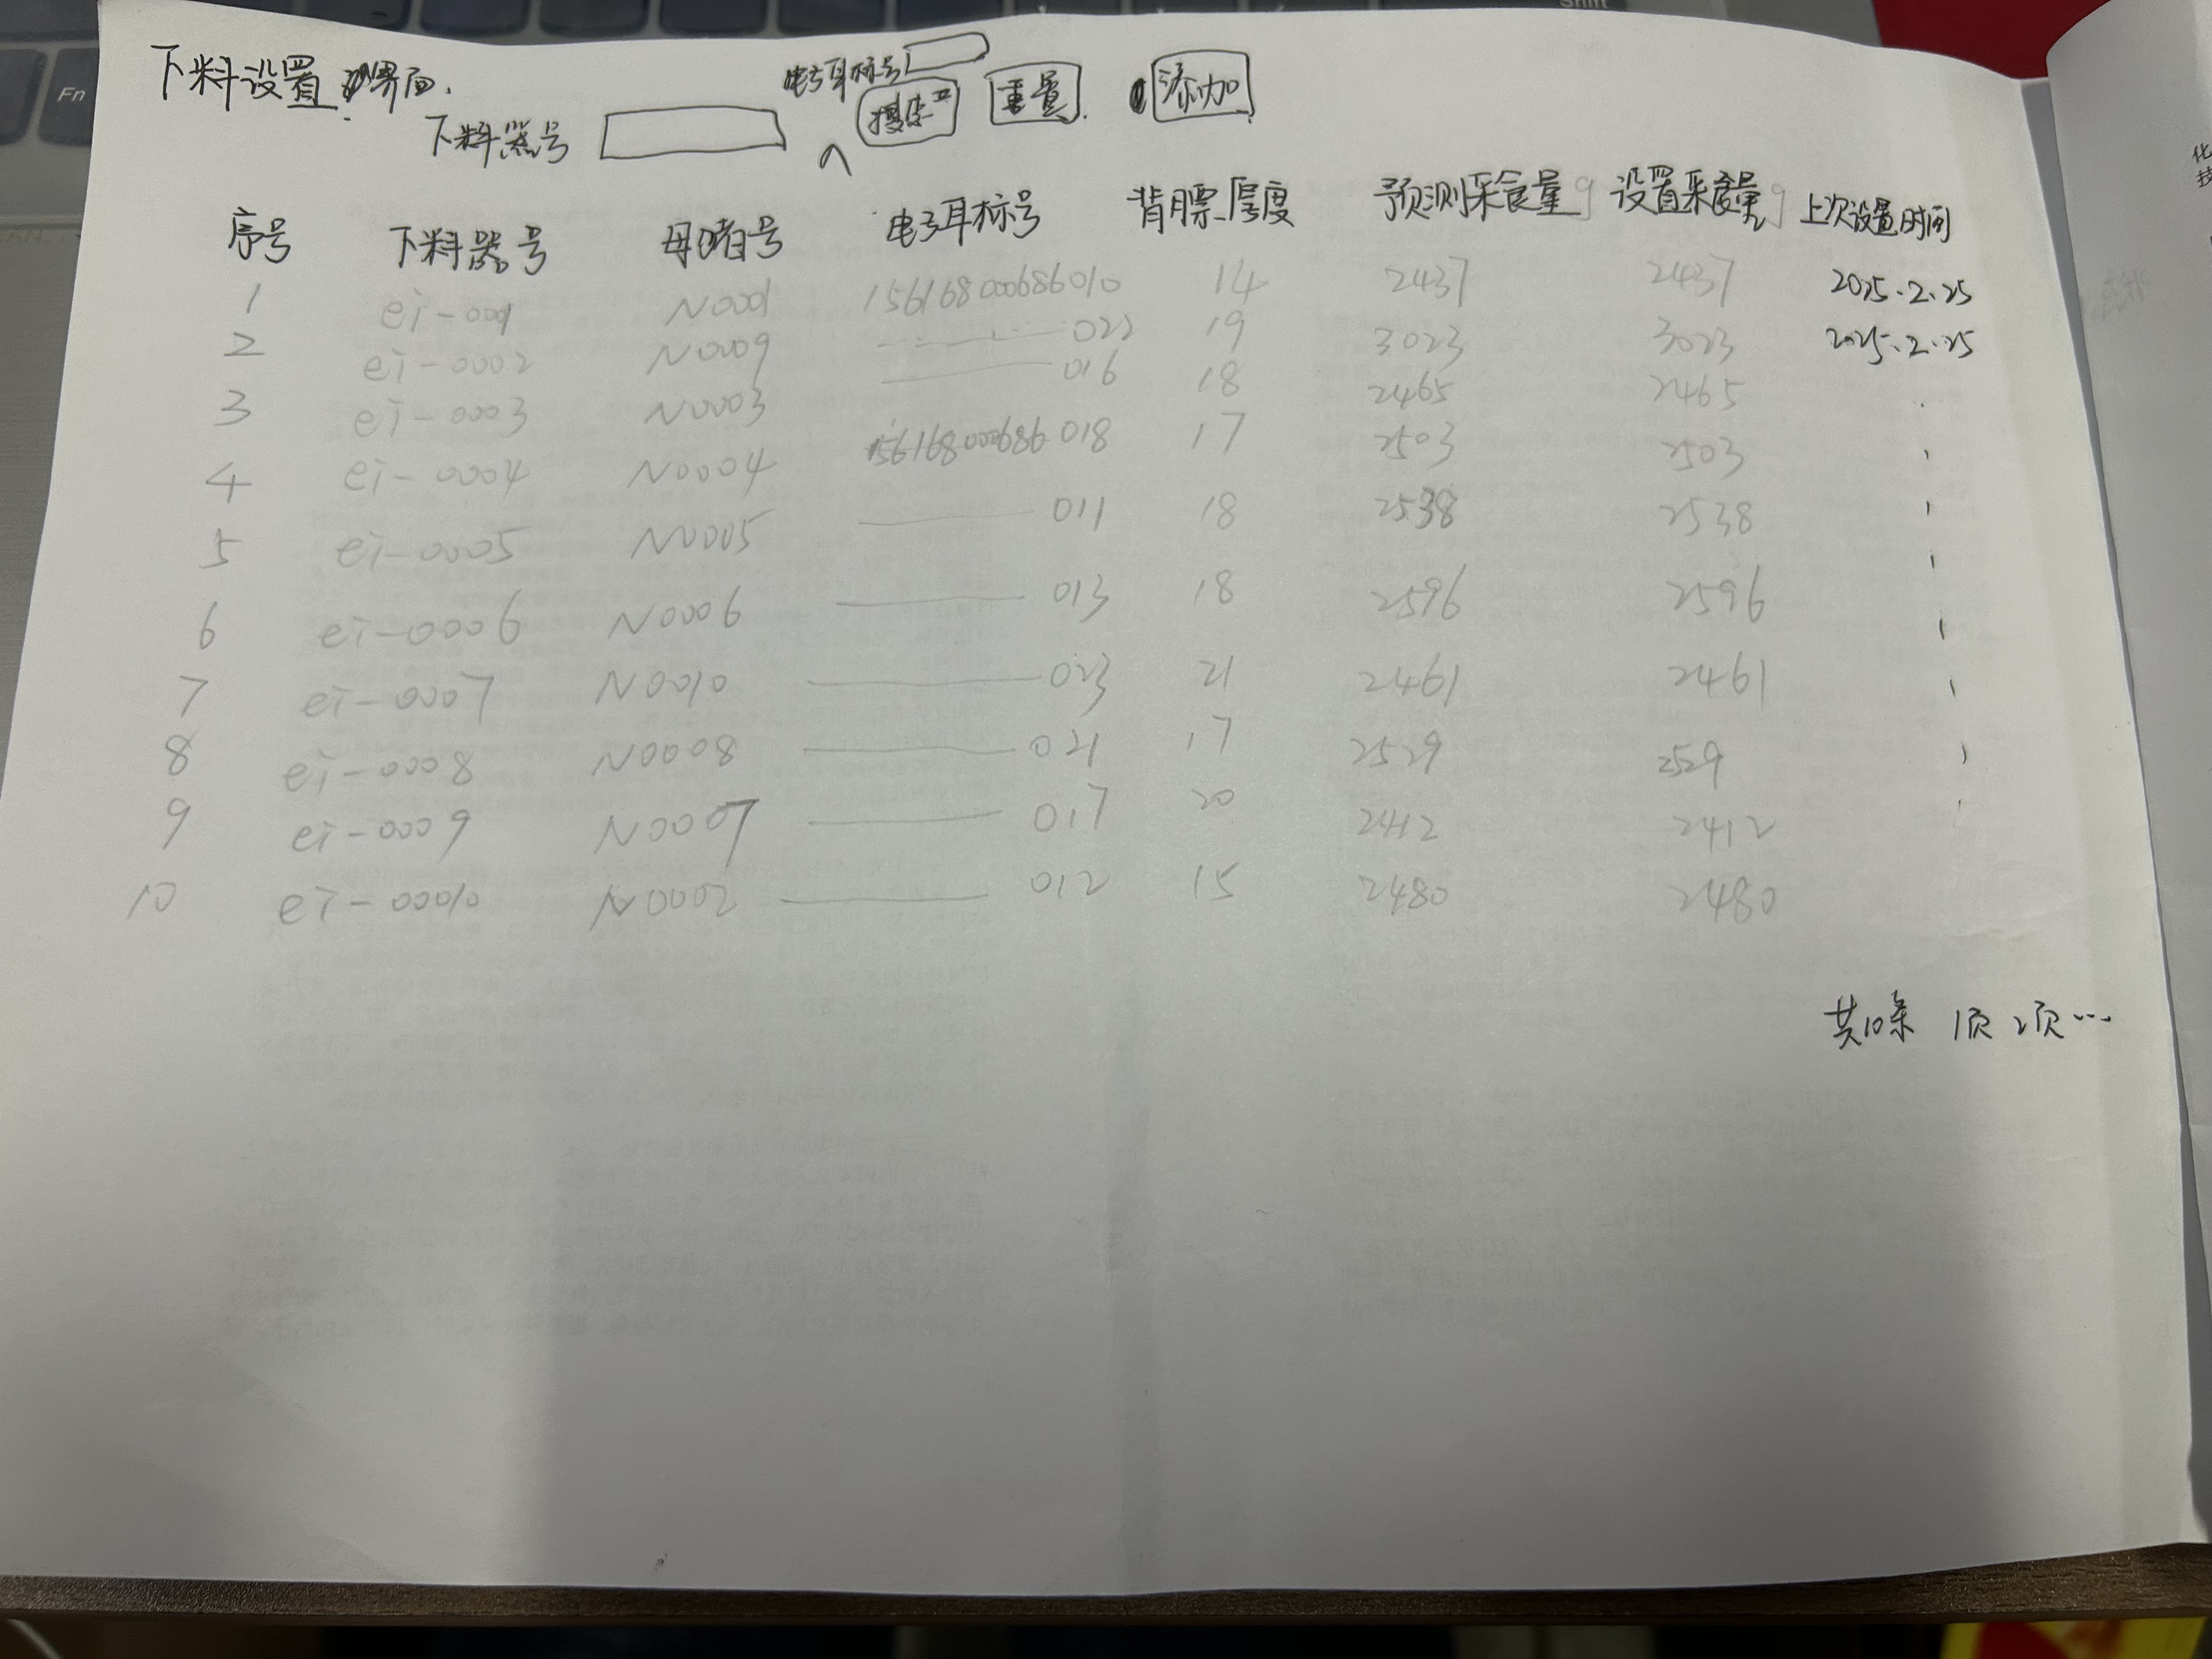 Shift
Fn
下料设置界面.
电子耳标号
下料器号 搜索 重置 添加
序号 下料器号 母猪号 电子耳标号 背膘厚度 预测采食量g 设置采食量g 上次设置时间
1 ei-0001 N0001 156168000686010 14 2437 2437 2025.2.25
2 ei-0002 N0009 ———022 19 3023 3023 2025.2.25
3 ei-0003 N0003 ———016 18 2465 2465
4 ei-0004 N0004 156168000686018 17 2503 2503
5 ei-0005 N0005 ———011 18 2538 2538
6 ei-0006 N0006 ———013 18 2596 2596
7 ei-0007 N0010 ———023 21 2461 2461
8 ei-0008 N0008 ———021 17 2529 2529
9 ei-0009 N0007 ———017 20 2412 2412
10 ei-00010 N0002 ———012 15 2480 2480
共10条 1页 2页…